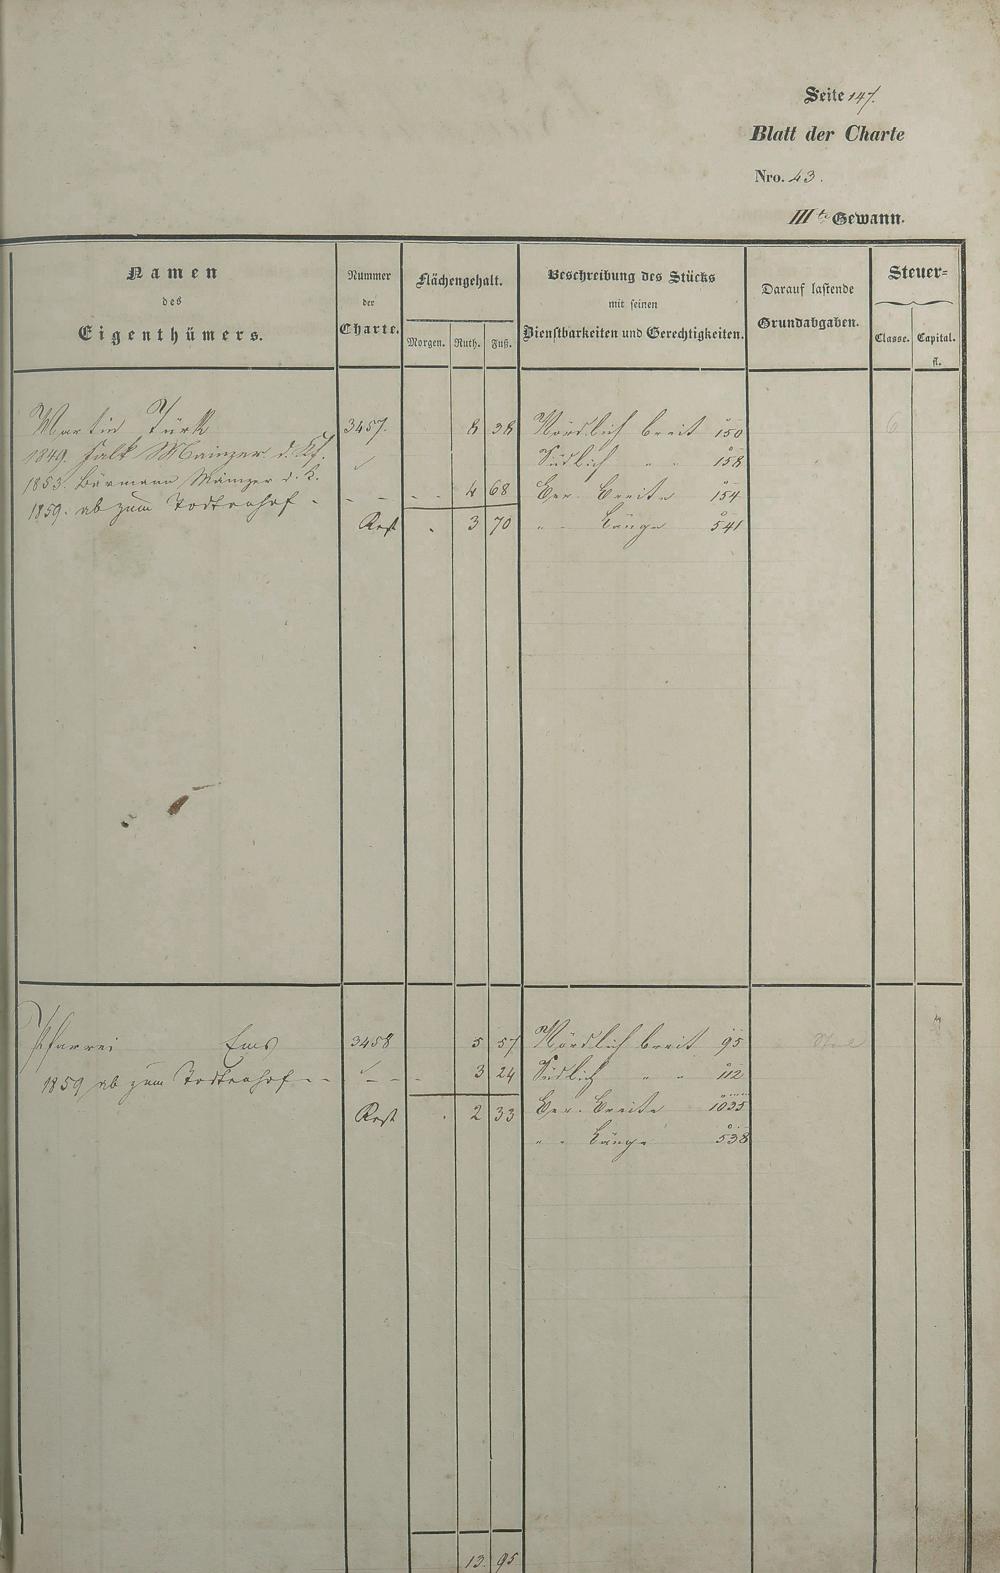 Seite 147.
Blatt der Charte
Nro. 43.
IIIte Gewann.
Namen des Eigenthümers.
Nummer der Charte.
Flächengehalt.
Morgen. Ruth. Fuß.
Beschreibung des Stücks mit seinen Dienstbarkeiten und Gerechtigkeiten.
Darauf lastende Grundabgaben.
Steuer-
Classe. Capital. fl.
Martin Türk 3457. 8 38 Nördlich breit 150 6
1849. Falk Mainzer d. Kf. Südlich " " 158
1853. Bärmann Mainzer d. K.
1859. ab zum Todtenhof - - - - - 4 68 Ber. Breite 154
Rest . 3 70 " " Länge 541
Pfarrei Ems 3458 5 57 Nördlich breit 95
1859 ab zum Todtenhof - - - - - 3 24 Südlich " " 112
Rest . 2 33 Ber. Breite 1035
" " Länge 538
13 95